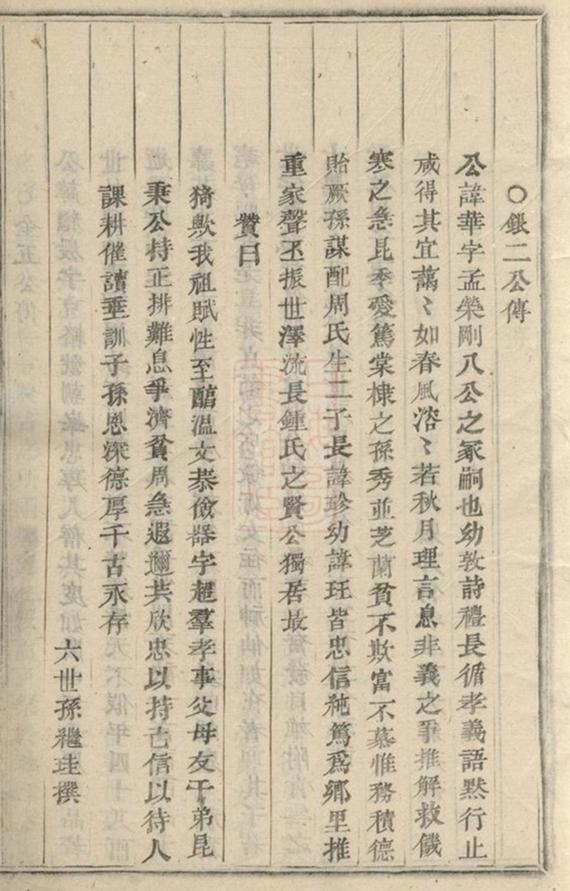 ○銀二公傳
公諱華字孟榮剛八公之冢嗣也幼敦詩禮長循孝義語黙行止
咸得其宜藹〻如春風溶〻若秋月理言息非義之爭推解救饑
寒之急昆季愛篤棠棣之孫秀並芝蘭貧不欺富不慕惟務積德
貽厥孫謀配周氏生二子長諱珍幼諱玨皆忠信純篤爲鄉里推
重家聲丕振世澤流長鍾氏之賢公獨居最
贊曰
猗歟我祖賦性至醇溫文恭儉器宇超羣孝事父母友于弟昆
秉公持正排難息爭濟貧周急遐邇共欣忠以持己信以待人
課耕催讀垂訓子孫恩深德厚千古永存
六世孫繼珪撰